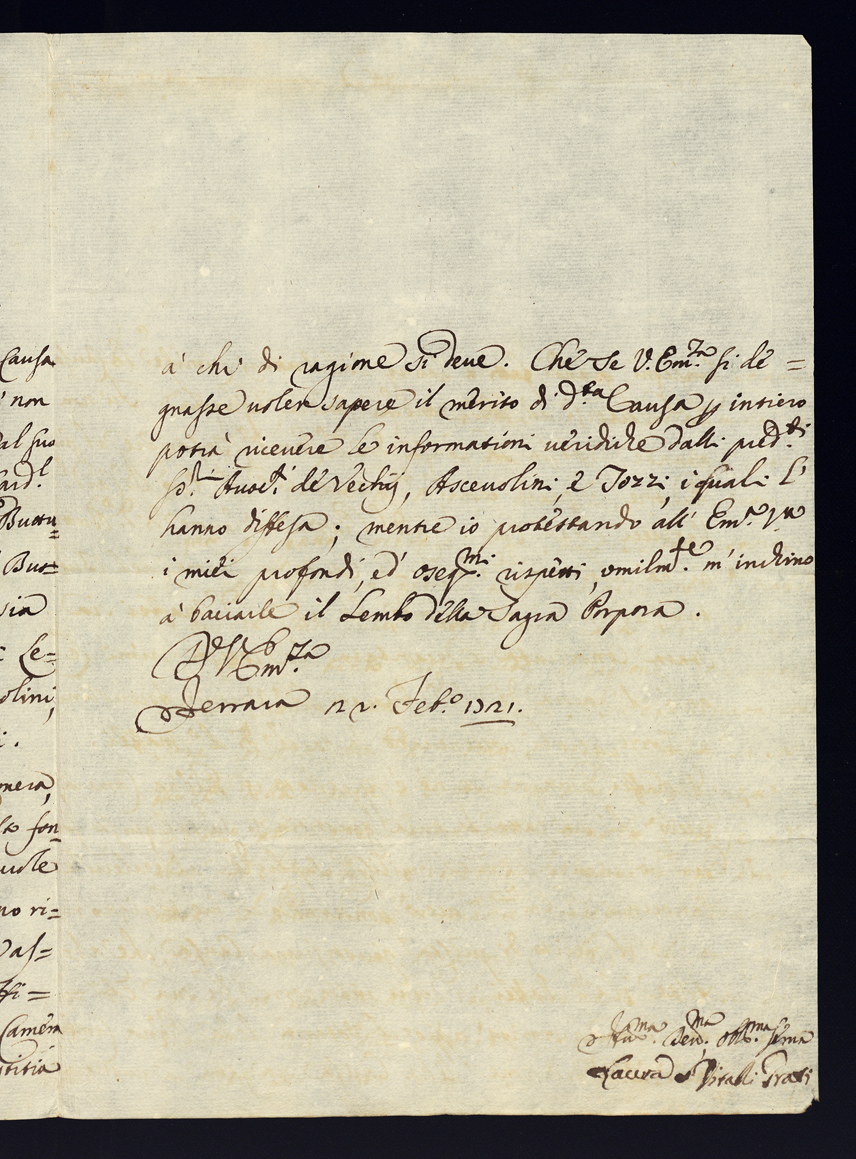 Causa
non
al suo
ard.l
Buttu=
But=
sia
Le=
olini,
mera,
fon=
uole
no ri=
Vas=
ffi=
Camera
stitia
à chi di ragione si deue. Che se V. Em.za si de=
gnasse uoler sapere il merito di d.ta Causa p intiero
potrà riceuere le informationi ueridiche dalli pred.ti
Auoc.ti de Vechij, Asceuolini, e Jozzi, i quali l'
hanno diffesa; mentre io protestando all' Em.a V.ra
i miei profondi, ed oseq.mi rispetti, omilm.te m'inchino
à baciarle il Lembo della Sagra Porpora.
D V Em.za
Ferrara 22. Feb.o 1721.
Hu.ma Deu.ma Obb.ma Serua
Laura Vitali Trotti